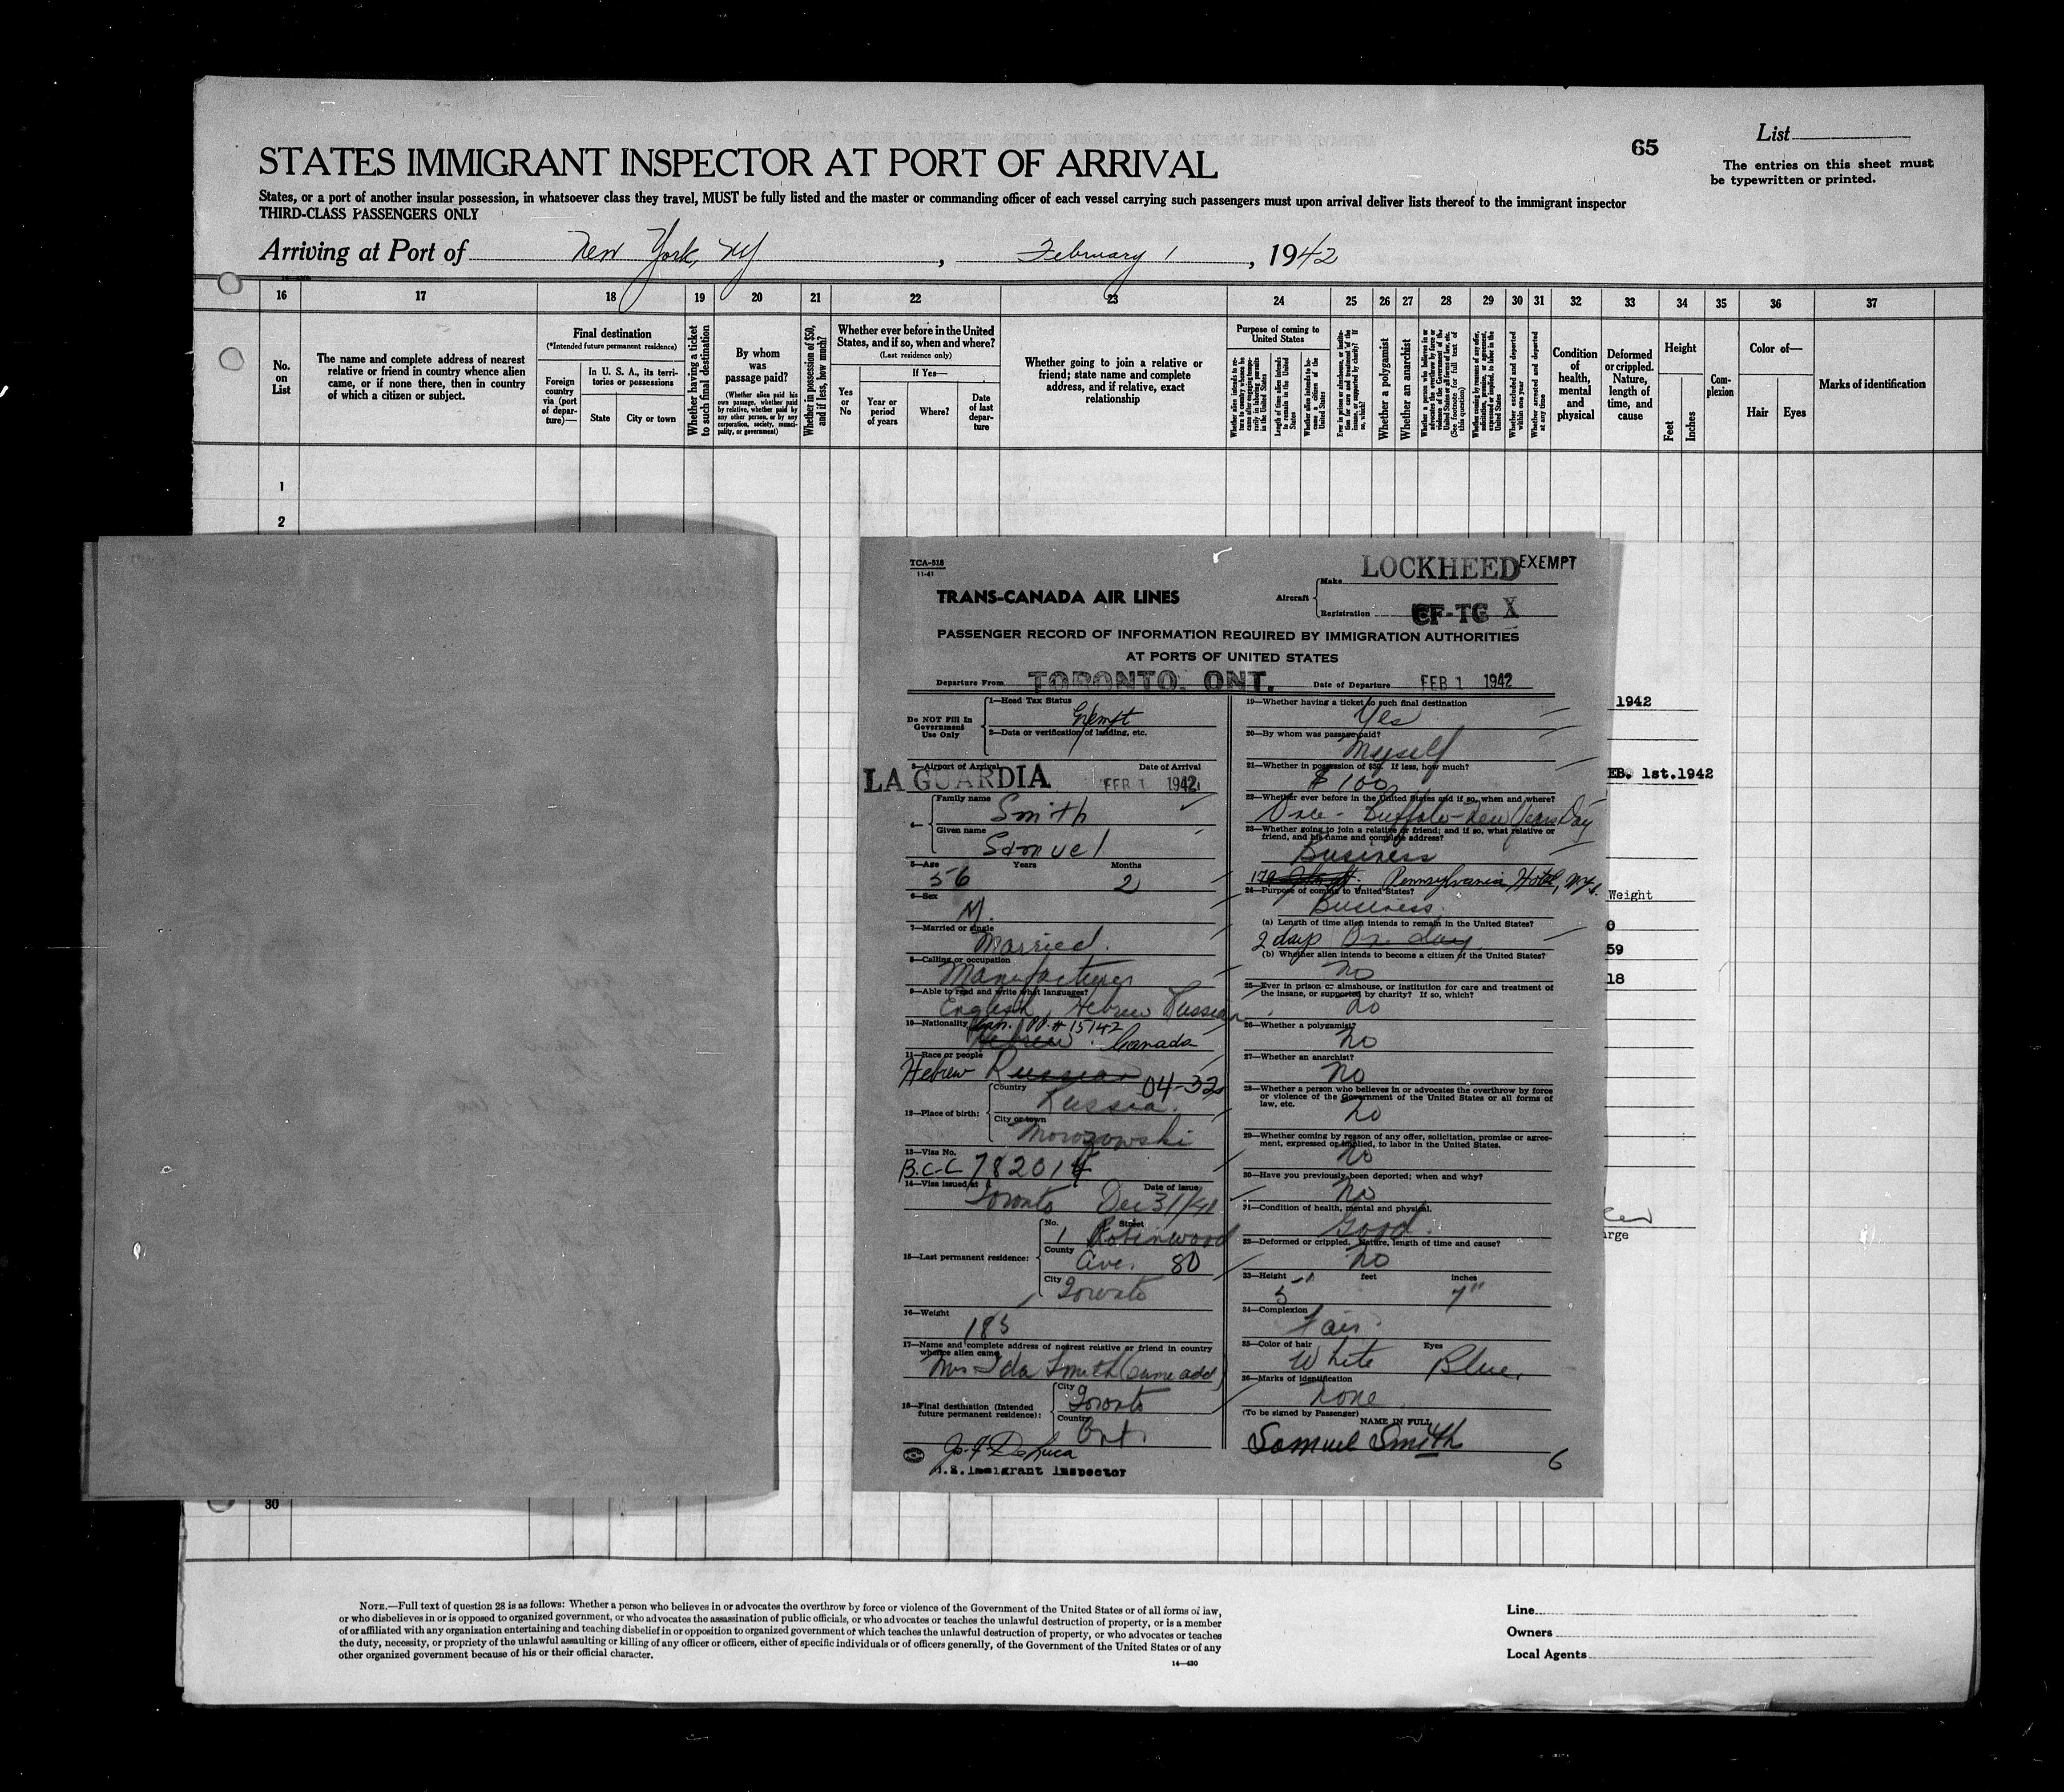 65
List
The entries on this sheet must
be typewritten or printed.
STATES IMMIGRANT INSPECTOR AT PORT OF ARRIVAL
States, or a port of another insular possession, in whatsoever class they travel, MUST be fully listed and the master or commanding officer of each vessel carrying such passengers must upon arrival deliver lists thereof to the immigrant inspector
THIRD-CLASS PASSENGERS ONLY
Arriving at Port of New York, NY, February 1, 1942
16 17 18 19 20 21 22 23 24 25 26 27 28 29 30 31 32 33 34 35 36 37
No. on List
The name and complete address of nearest relative or friend in country whence alien came, or if none there, then in country of which a citizen or subject.
Final destination
(*Intended future permanent residence)
Foreign country via (port of departure)—
In U. S. A., its territories or possessions
State
City or town
Whether having a ticket to such final destination
By whom was passage paid?
(Whether alien paid his own passage, whether paid by relative, whether paid by any other person, or by any corporation, society, municipality, or government)
Whether in possession of $50, and if less, how much?
Whether ever before in the United States, and if so, when and where?
(Last residence only)
Yes or No
If Yes—
Year or period of years
Where?
Date of last departure
Whether going to join a relative or friend; state name and complete address, and if relative, exact relationship
Purpose of coming to United States
Whether a polygamist
Whether an anarchist
Condition of health, mental and physical
Deformed or crippled. Nature, length of time, and cause
Height
Feet
Inches
Complexion
Color of—
Hair
Eyes
Marks of identification
1
2
30
TCA-518
11-41
LOCKHEED EXEMPT
TRANS-CANADA AIR LINES
Aircraft
Make
Registration CF-TC X
PASSENGER RECORD OF INFORMATION REQUIRED BY IMMIGRATION AUTHORITIES
AT PORTS OF UNITED STATES
Departure From TORONTO, ONT.
Date of Departure FEB 1 1942
Do NOT Fill In Government Use Only
1—Head Tax Status
Exempt
2—Data or verification of landing, etc.
3—Airport of Arrival
Date of Arrival
LA GUARDIA FEB 1 1942
4—
Family name
Smith
Given name
Samuel
5—Age Years Months
56 2
6—Sex
M.
7—Married or single
Married.
8—Calling or occupation
Manufacturer
9—Able to read and write what languages?
English, Hebrew Russian
10—Nationality
# 15142
Hebrew Canada
11—Race or people
Hebrew Russian
04-32
12—Place of birth:
Country
Russia.
City or town
Morozowski
13—Visa No.
B.C.C 782014
14—Visa issued at
Date of issue
Toronto Dec 31/41
15—Last permanent residence:
No. Street
1 Robinwood
County
Ave. 80
City
Toronto
16—Weight
185
17—Name and complete address of nearest relative or friend in country
whence alien came
Mrs Ida Smith (same add)
18—Final destination (Intended
future permanent residence):
City
Toronto
Country
Ont.
U.S. Immigrant Inspector
19—Whether having a ticket to such final destination
Yes
20—By whom was passage paid?
Myself
21—Whether in possession of $50. If less, how much?
$ 100
22—Whether ever before in the United States and if so, when and where?
Once - Buffalo - New Years Day
23—Whether going to join a relative or friend; and if so, what relative or
friend, and his name and complete address?
Business
Pennsylvania Hotel, N.Y.
24—Purpose of coming to United States?
Business.
(a) Length of time alien intends to remain in the United States?
2 days One day
(b) Whether alien intends to become a citizen of the United States?
No
25—Ever in prison or almshouse, or institution for care and treatment of
the insane, or supported by charity? If so, which?
No
26—Whether a polygamist?
No
27—Whether an anarchist?
No
28—Whether a person who believes in or advocates the overthrow by force
or violence of the Government of the United States or all forms of
law, etc.
No
29—Whether coming by reason of any offer, solicitation, promise or agree-
ment, expressed or implied, to labor in the United States.
No
30—Have you previously been deported; when and why?
No
31—Condition of health, mental and physical.
Good.
32—Deformed or crippled. Nature, length of time and cause?
No
33—Height feet inches
5 7"
34—Complexion
Fair.
35—Color of hair Eyes
White Blue.
36—Marks of identification
None
(To be signed by Passenger)
NAME IN FULL
Samuel Smith
6
1942
EB. 1st.1942
Weight
0
59
18
arge
NOTE.—Full text of question 28 is as follows: Whether a person who believes in or advocates the overthrow by force or violence of the Government of the United States or of all forms of law,
or who disbelieves in or is opposed to organized government, or who advocates the assassination of public officials, or who advocates or teaches the unlawful destruction of property, or is a member
of or affiliated with any organization entertaining and teaching disbelief in or opposition to organized government of which teaches the unlawful destruction of property, or who advocates or teaches
the duty, necessity, or propriety of the unlawful assaulting or killing of any officer or officers, either of specific individuals or of officers generally, of the Government of the United States or of any
other organized government because of his or their official character.
14—430
Line
Owners
Local Agents